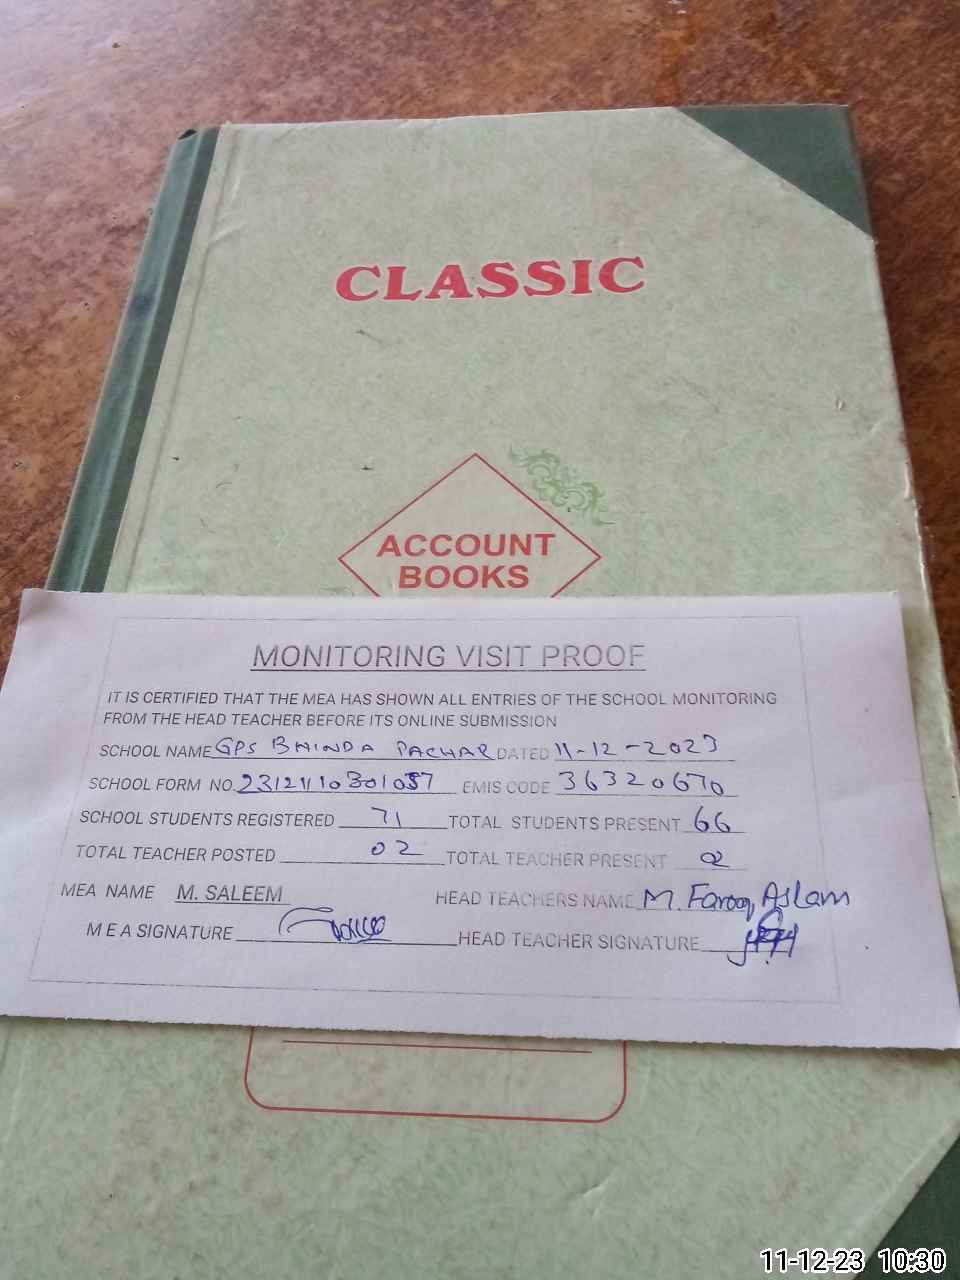 CLASSIC
ACCOUNT
BOOKS
MONITORING VISIT PROOF
IT IS CERTIFIED THAT THE MEA HAS SHOWN ALL ENTRIES OF THE SCHOOL MONITORING
FROM THE HEAD TEACHER BEFORE ITS ONLINE SUBMISSION
SCHOOL NAME GPS BHINDA PACHAR DATED 11-12-2023
SCHOOL FORM NO. EMIS CODE 36320670
SCHOOL STUDENTS REGISTERED 71 TOTAL STUDENTS PRESENT 66
TOTAL TEACHER POSTED 02 TOTAL TEACHER PRESENT 02
MEA NAME M. SALEEM HEAD TEACHERS NAME M. Farooq Aslam
M E A SIGNATURE HEAD TEACHER SIGNATURE
11-12-23 10:30